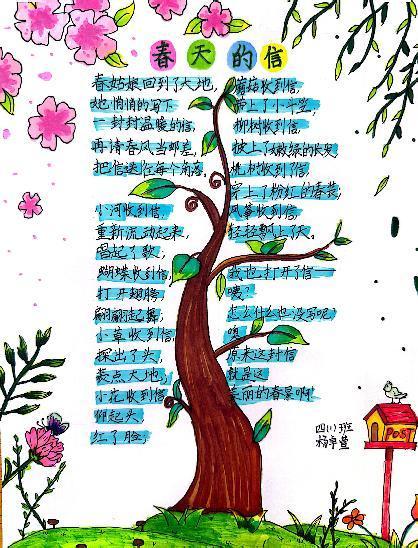 春天的信
春姑娘回到了大地，
她悄悄的写下
一封封温暖的信，
再请春风当邮差，
把信送往每个角落。
小河收到信，
重新流动起来，
唱起了歌；
蝴蝶收到信，
打开翅膀
翩翩起舞；
小草收到信，
探出了头，
装点大地；
小花收到信，
仰起头，
红了脸。
收到信，
上了小斗笠，
柳树收到信，
披上了嫩绿的长发，
桃树收到了信，
穿上了粉红的春装，
风筝收到信，
轻轻飘上了天。
我也打开了信——
咦？
怎么什么也没写呢？
噢，
原来这封信
就是这
美丽的春景啊！
四（1）班
杨卓萱
POST